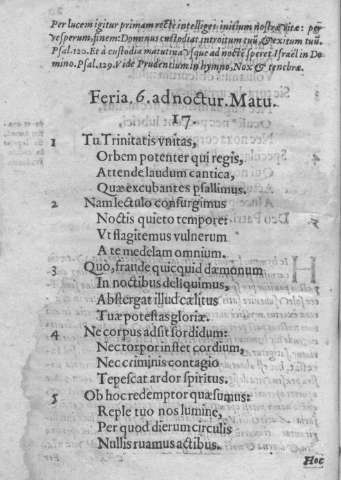 Per lucem igitur primam recte intelligit initium nostræ vitæ: per
vesperum, finem: Dominus custodiat introitum tuũ, & exitum tuũ.
Psal. 120. Et à custodia matutina vsque ad noctẽ speret Israël in Do-
mino. Psal. 129. Vide Prudentium in hymno, Nox & tenebræ.
Feria. 6. ad noctur. Matu.
17.
1 Tu Trinitatis vnitas,
Orbem potenter qui regis,
Attende laudum cantica,
Quæ excubantes psallimus.
2 Nam lectulo consurgimus
Noctis quieto tempore:
Vt flagitemus vulnerum
A te medelam omnium.
3 Quò, fraude quicquid dæmonum
In noctibus deliquimus,
Abstergat illud cælitus
Tuæ potestas gloriæ.
4 Ne corpus adsit sordidum:
Nec torpor instet cordium,
Nec criminis contagio
Tepescat ardor spiritus.
5 Ob hoc redemptor quæsumus:
Reple tuo nos lumine,
Per quod dierum circulis
Nullis ruamus actibus.
Hoc